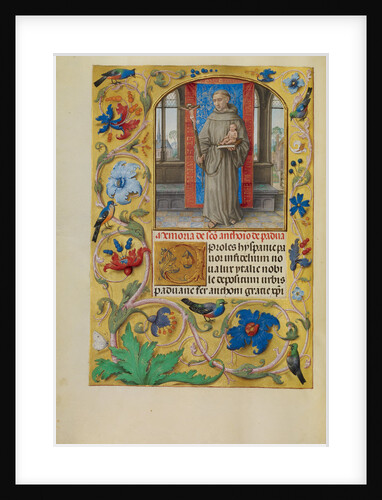 Memoria de scō anthoīo de padua
Proles hyspanie pa
uor infidelium no
ua lux ytalie nobi
le depositum urbis
paduane fer anthoni gratie xp̄i